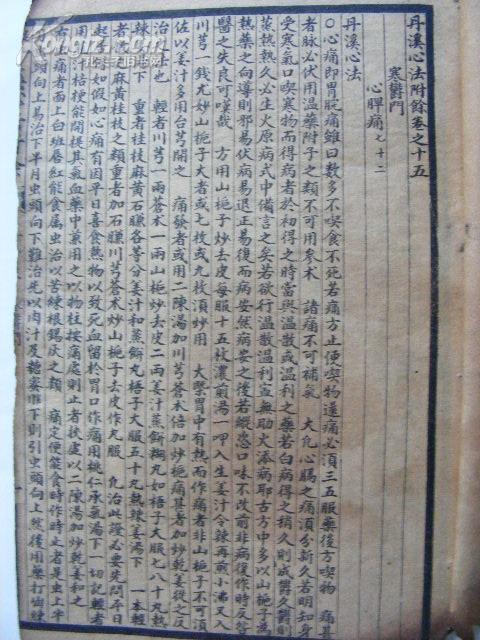 丹溪心法附餘卷之十五
寒鬱門
心脾痛七十二
丹溪心法
○心痛即胃脘痛雖曰數多不喫食不死若痛方止便喫物還痛必須三五服藥後方喫物 痛甚
者脉必伏用温藥附子之類不可用參术 諸痛不可補氣 大凡心膈之痛須分新久若明知身
受寒氣口喫寒物而得病者於初得之時當與温散或温利之藥若曰病得之稍久則成鬱久鬱則
蒸熱熱久必生火原病式中備言之矣若欲行温散温利寧無助火添病耶古方中多以山梔子為
熱藥之向導則邪易伏病易退正易復而病安然病安之後若縱恣口味不改前非病復作時反咎
醫之失良可嘆哉 方用山梔子炒去皮每服十五枚濃煎湯一呷入生姜汁令辣再煎小沸又入
川芎一錢尤妙山梔子大者或七枚或九枚須炒用 大槩胃中有熱而作痛者非山梔子不可須
佐以姜汁多用台芎開之 痛發者或用二陳湯加川芎蒼术倍加炒梔痛甚者加炒乾姜從之反
治之法 輕者川芎一兩蒼术一兩山梔炒去皮二兩姜汁蒸餅糊丸如梧子大服七八十丸熱
辣姜湯下 重者桂枝麻黄石鹻各等分姜汁和蒸餅丸梧子大服五十丸熱辣姜湯下 一本輕
者散之麻黄桂枝之類重者加石鹻川芎蒼术炒山梔子去皮作丸服 凡治此證必要先問平日
起居如何假如心痛有因平日喜食熱物以致死血留於胃口作痛用桃仁承氣湯下 切記輕者
用韭汁桔梗能開提其氣血藥中兼用之以物柱按痛處則止者挾虛以二陳湯加炒乾姜和之
有虫痛者面上白斑唇紅能食属虫治以苦練根錫灰之類 痛定便能食時作時止者是虫上半
月虫頭向上易治下半月虫頭向下難治先以肉汁及糖蜜啉下則引虫頭向上然後用藥打出